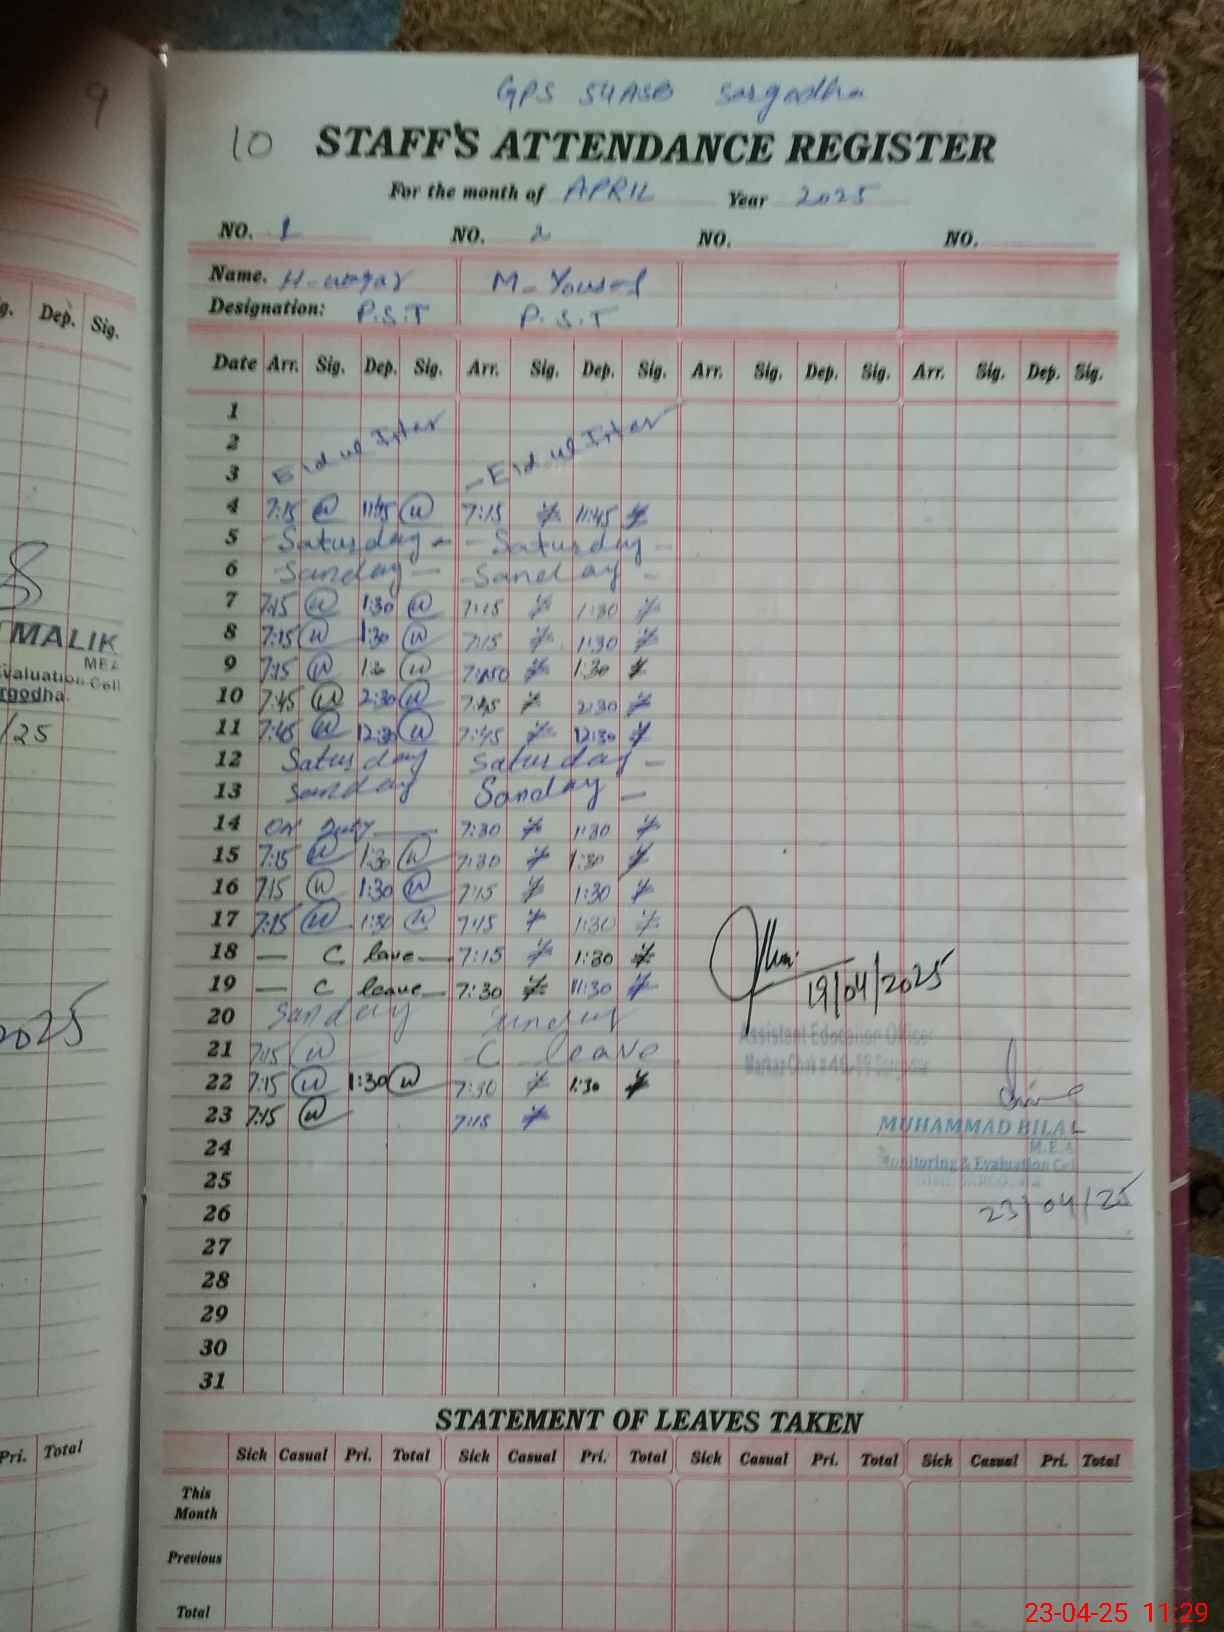 9
GPS 54ASB Sargodha
10 STAFF'S ATTENDANCE REGISTER
For the month of APRIL Year 2025
NO. 1 NO. 2 NO. NO.
Name. H-waqar M-Yousaf
Designation: P.S.T P.S.T
g. Dep. Sig.
Date Arr. Sig. Dep. Sig. Arr. Sig. Dep. Sig. Arr. Sig. Dep. Sig. Arr. Sig. Dep. Sig.
1
2 Eid ul Fiter - Eid ul Fiter
3
4 7:15 w 11:45 w 7:15 11:45
5 - Saturday - - Saturday -
6 - Sanday - - Sanday -
7 7:15 w 1:30 w 7:15 1:30
8 7:15 w 1:30 w 7:15 1:30
9 7:15 w 1:30 w 1:30
10 7:45 w 2:30 w 7:45 2:30
11 7:45 w 12:30 w 7:45 12:30
12 Saturday Saturday -
13 Sanday Sanday -
14 On Duty 7:30 1:30
15 7:15 w 1:30 w 7:30 1:30
16 7:15 w 1:30 w 7:15 1:30
17 7:15 w 1:30 w 7:15 1:30
18 - C lave - 7:15 1:30
19 - C leave - 7:30 11:30
20 Sanday
21 7:15 w C leave
22 7:15 w 1:30 w 7:30 1:30
23 7:15 w 7:15
24
25
26
27
28
29
30
31
19/04/2025
Assistant Education Officer
MUHAMMAD BILAL
M.E.A
Monitoring & Evaluation Cell
23/04/25
MALIK
MEA
Evaluation Cell
rgodha.
/25
2025
STATEMENT OF LEAVES TAKEN
Pri. Total
Sick Casual Pri. Total Sick Casual Pri. Total Sick Casual Pri. Total Sick Casual Pri. Total
This
Month
Previous
Total
23-04-25 11:29